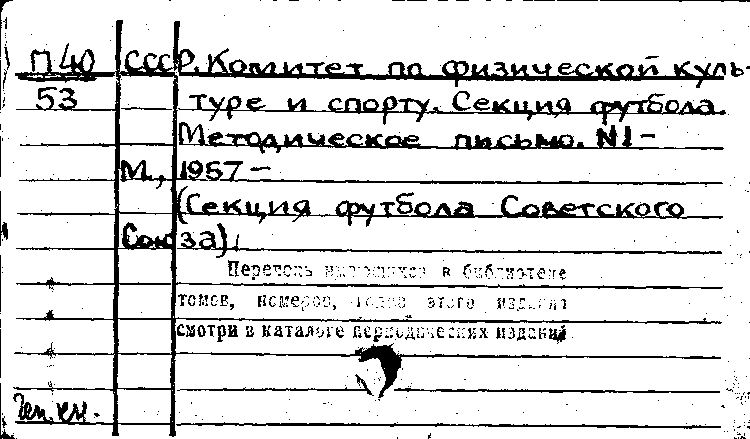 П40 СССР. Комитет по физической куль-
53 туре и спорту. Секция футбола.
Методическое письмо. N1 —
М., 1957 —
(Секция футбола Советского
Союза).
Перечень имеющихся в библиотеке
томов, номеров, годов этого издания
смотри в каталоге периодических изданий